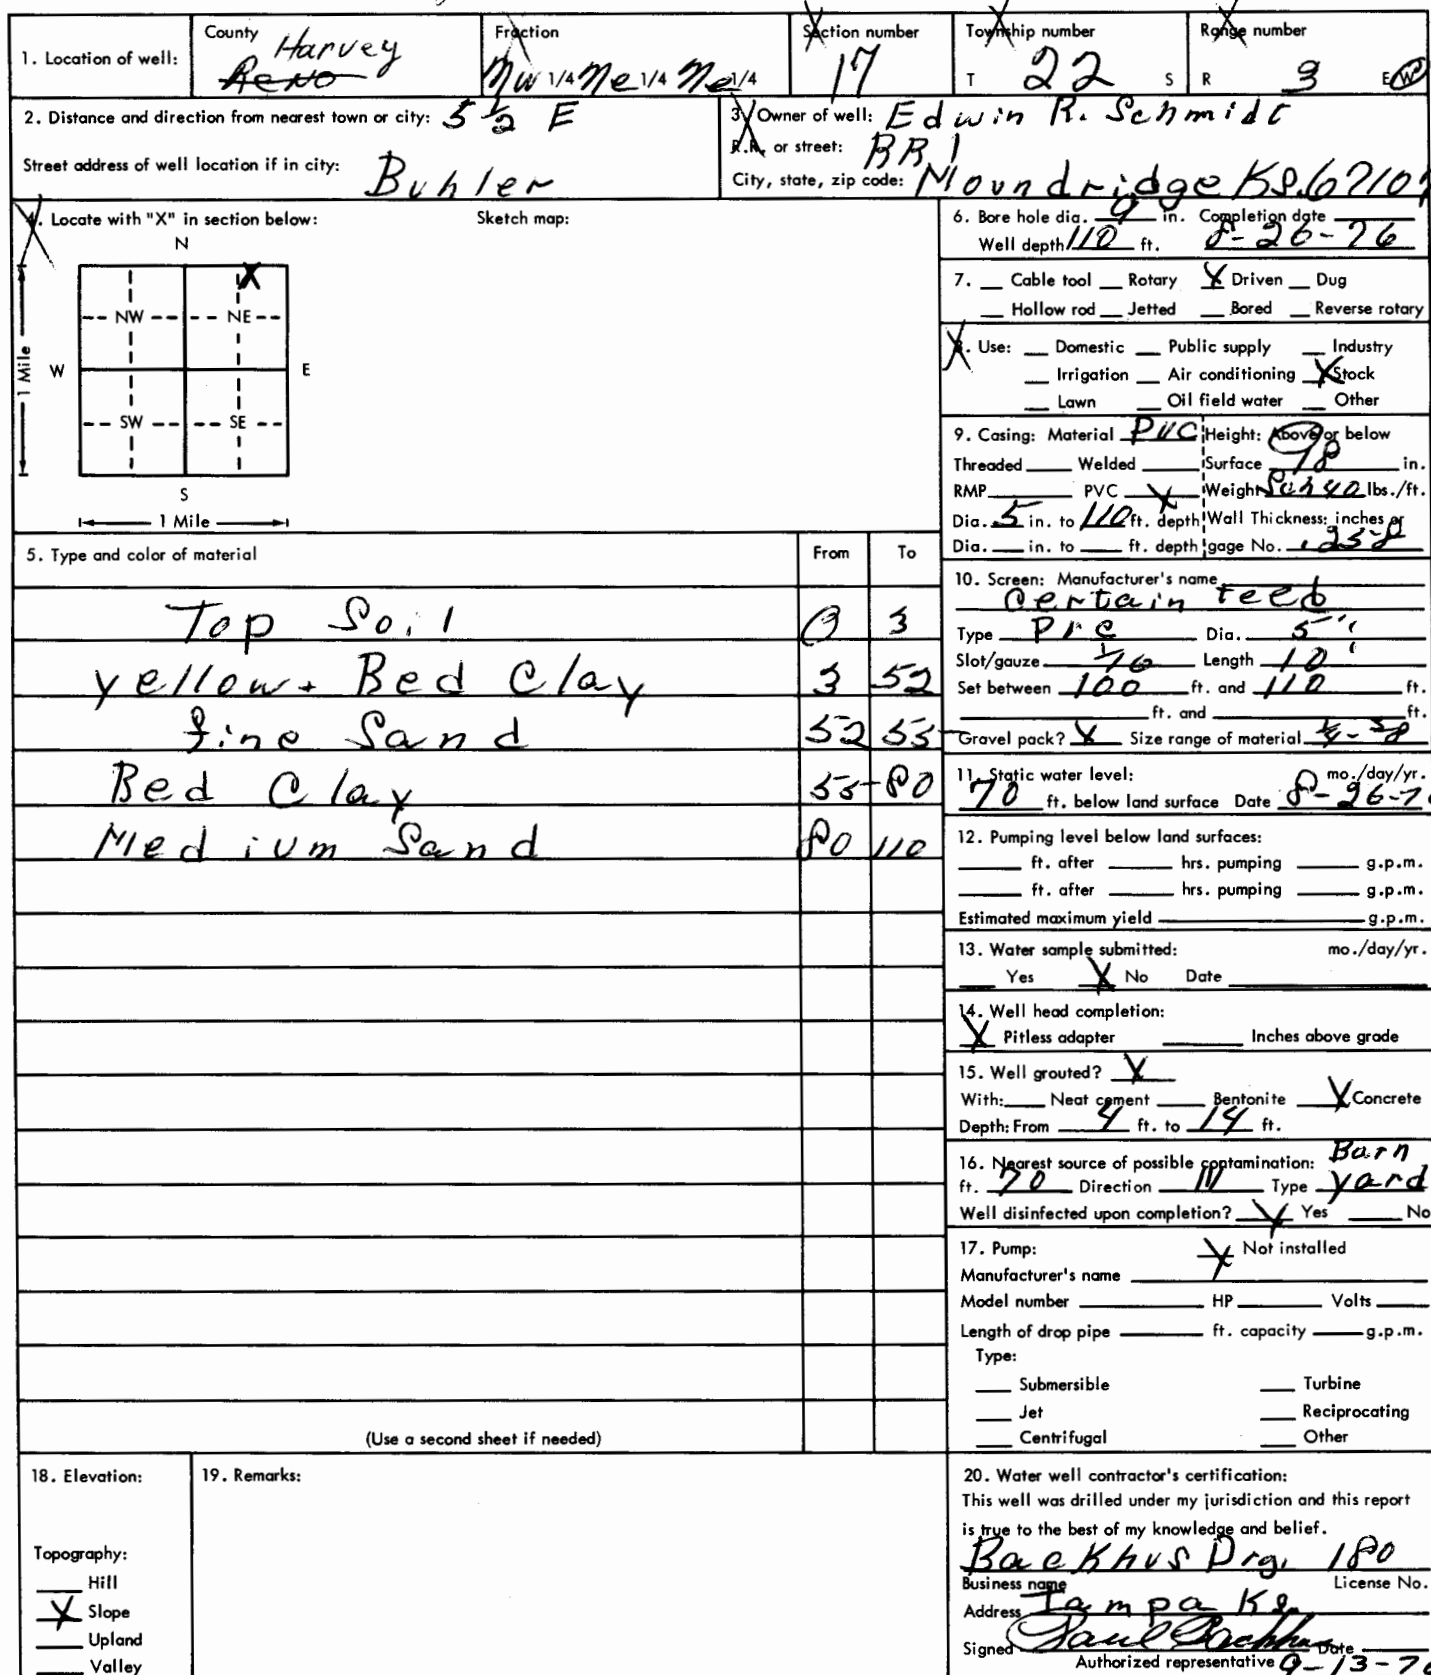 1. Location of well: County Harvey Reno Fraction NW 1/4 Ne 1/4 Ne 1/4 Section number 17 Township number T 22 S Range number R 3 E W
2. Distance and direction from nearest town or city: 5 1/2 E
Street address of well location if in city: Buhler
3. Owner of well: Edwin R. Schmidt
R.R. or street: RR 1
City, state, zip code: Moundridge Ks. 67107
4. Locate with "X" in section below: Sketch map:
N
X
NW NE
W E
1 Mile
SW SE
S
1 Mile
5. Type and color of material From To
Top Soil 0 3
yellow + Red Clay 3 52
fine Sand 52 55
Red Clay 55 80
Medium Sand 80 110
(Use a second sheet if needed)
6. Bore hole dia. 9 in. Completion date
Well depth 110 ft. 8-26-76
7. Cable tool Rotary X Driven Dug
Hollow rod Jetted Bored Reverse rotary
8. Use: Domestic Public supply Industry
Irrigation Air conditioning X Stock
Lawn Oil field water Other
9. Casing: Material PVC Height: Above or below
Threaded Welded Surface 18 in.
RMP PVC X Weight Sch 40 lbs./ft.
Dia. 5 in. to 110 ft. depth Wall Thickness: inches or
Dia. in. to ft. depth gage No. .258
10. Screen: Manufacturer's name
Certain Teed
Type PVC Dia. 5"
Slot/gauze 1/16 Length 10'
Set between 100 ft. and 110 ft.
ft. and ft.
Gravel pack? X Size range of material 1/4 - 3/8
11. Static water level: mo./day/yr.
70 ft. below land surface Date 8-26-7
12. Pumping level below land surfaces:
ft. after hrs. pumping g.p.m.
ft. after hrs. pumping g.p.m.
Estimated maximum yield g.p.m.
13. Water sample submitted: mo./day/yr.
Yes X No Date
14. Well head completion:
X Pitless adapter Inches above grade
15. Well grouted? X
With: Neat cement Bentonite X Concrete
Depth: From 4 ft. to 14 ft.
16. Nearest source of possible contamination: Barn
ft. 70 Direction Type yard
Well disinfected upon completion? X Yes No
17. Pump: X Not installed
Manufacturer's name
Model number HP Volts
Length of drop pipe ft. capacity g.p.m.
Type:
Submersible Turbine
Jet Reciprocating
Centrifugal Other
18. Elevation:
Topography:
Hill
X Slope
Upland
Valley
19. Remarks:
20. Water well contractor's certification:
This well was drilled under my jurisdiction and this report
is true to the best of my knowledge and belief.
Backhus Drg. 180
Business name License No.
Address Tampa Ks.
Signed Paul Backhus Date
Authorized representative 9-13-76